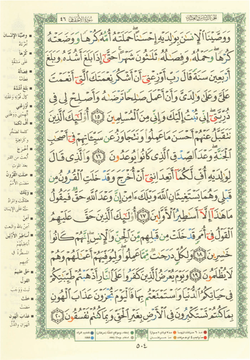 الجزء السادس والعشرون
سورة الأحقاف ٤٦
وَوَصَّيْنَا ٱلْإِنسَٰنَ بِوَٰلِدَيْهِ إِحْسَٰنًا ۖ حَمَلَتْهُ أُمُّهُۥ كُرْهًا وَوَضَعَتْهُ
كُرْهًا ۖ وَحَمْلُهُۥ وَفِصَٰلُهُۥ ثَلَٰثُونَ شَهْرًا ۚ حَتَّىٰٓ إِذَا بَلَغَ أَشُدَّهُۥ وَبَلَغَ
أَرْبَعِينَ سَنَةً قَالَ رَبِّ أَوْزِعْنِىٓ أَنْ أَشْكُرَ نِعْمَتَكَ ٱلَّتِىٓ أَنْعَمْتَ
عَلَىَّ وَعَلَىٰ وَٰلِدَىَّ وَأَنْ أَعْمَلَ صَٰلِحًا تَرْضَىٰهُ وَأَصْلِحْ لِى فِى
ذُرِّيَّتِىٓ ۖ إِنِّى تُبْتُ إِلَيْكَ وَإِنِّى مِنَ ٱلْمُسْلِمِينَ ﴿١٥﴾ أُو۟لَٰٓئِكَ ٱلَّذِينَ
نَتَقَبَّلُ عَنْهُمْ أَحْسَنَ مَا عَمِلُوا۟ وَنَتَجَاوَزُ عَن سَيِّـَٔاتِهِمْ فِىٓ أَصْحَٰبِ
ٱلْجَنَّةِ ۖ وَعْدَ ٱلصِّدْقِ ٱلَّذِى كَانُوا۟ يُوعَدُونَ ﴿١٦﴾ وَٱلَّذِى قَالَ
لِوَٰلِدَيْهِ أُفٍّ لَّكُمَآ أَتَعِدَانِنِىٓ أَنْ أُخْرَجَ وَقَدْ خَلَتِ ٱلْقُرُونُ مِن
قَبْلِى وَهُمَا يَسْتَغِيثَانِ ٱللَّهَ وَيْلَكَ ءَامِنْ إِنَّ وَعْدَ ٱللَّهِ حَقٌّ فَيَقُولُ
مَا هَٰذَآ إِلَّآ أَسَٰطِيرُ ٱلْأَوَّلِينَ ﴿١٧﴾ أُو۟لَٰٓئِكَ ٱلَّذِينَ حَقَّ عَلَيْهِمُ
ٱلْقَوْلُ فِىٓ أُمَمٍ قَدْ خَلَتْ مِن قَبْلِهِم مِّنَ ٱلْجِنِّ وَٱلْإِنسِ ۖ إِنَّهُمْ كَانُوا۟
خَٰسِرِينَ ﴿١٨﴾ وَلِكُلٍّ دَرَجَٰتٌ مِّمَّا عَمِلُوا۟ ۖ وَلِيُوَفِّيَهُمْ أَعْمَٰلَهُمْ وَهُمْ
لَا يُظْلَمُونَ ﴿١٩﴾ وَيَوْمَ يُعْرَضُ ٱلَّذِينَ كَفَرُوا۟ عَلَى ٱلنَّارِ أَذْهَبْتُمْ طَيِّبَٰتِكُمْ
فِى حَيَاتِكُمُ ٱلدُّنْيَا وَٱسْتَمْتَعْتُم بِهَا فَٱلْيَوْمَ تُجْزَوْنَ عَذَابَ ٱلْهُونِ
بِمَا كُنتُمْ تَسْتَكْبِرُونَ فِى ٱلْأَرْضِ بِغَيْرِ ٱلْحَقِّ وَبِمَا كُنتُمْ تَفْسُقُونَ ﴿٢٠﴾
٥٠٤